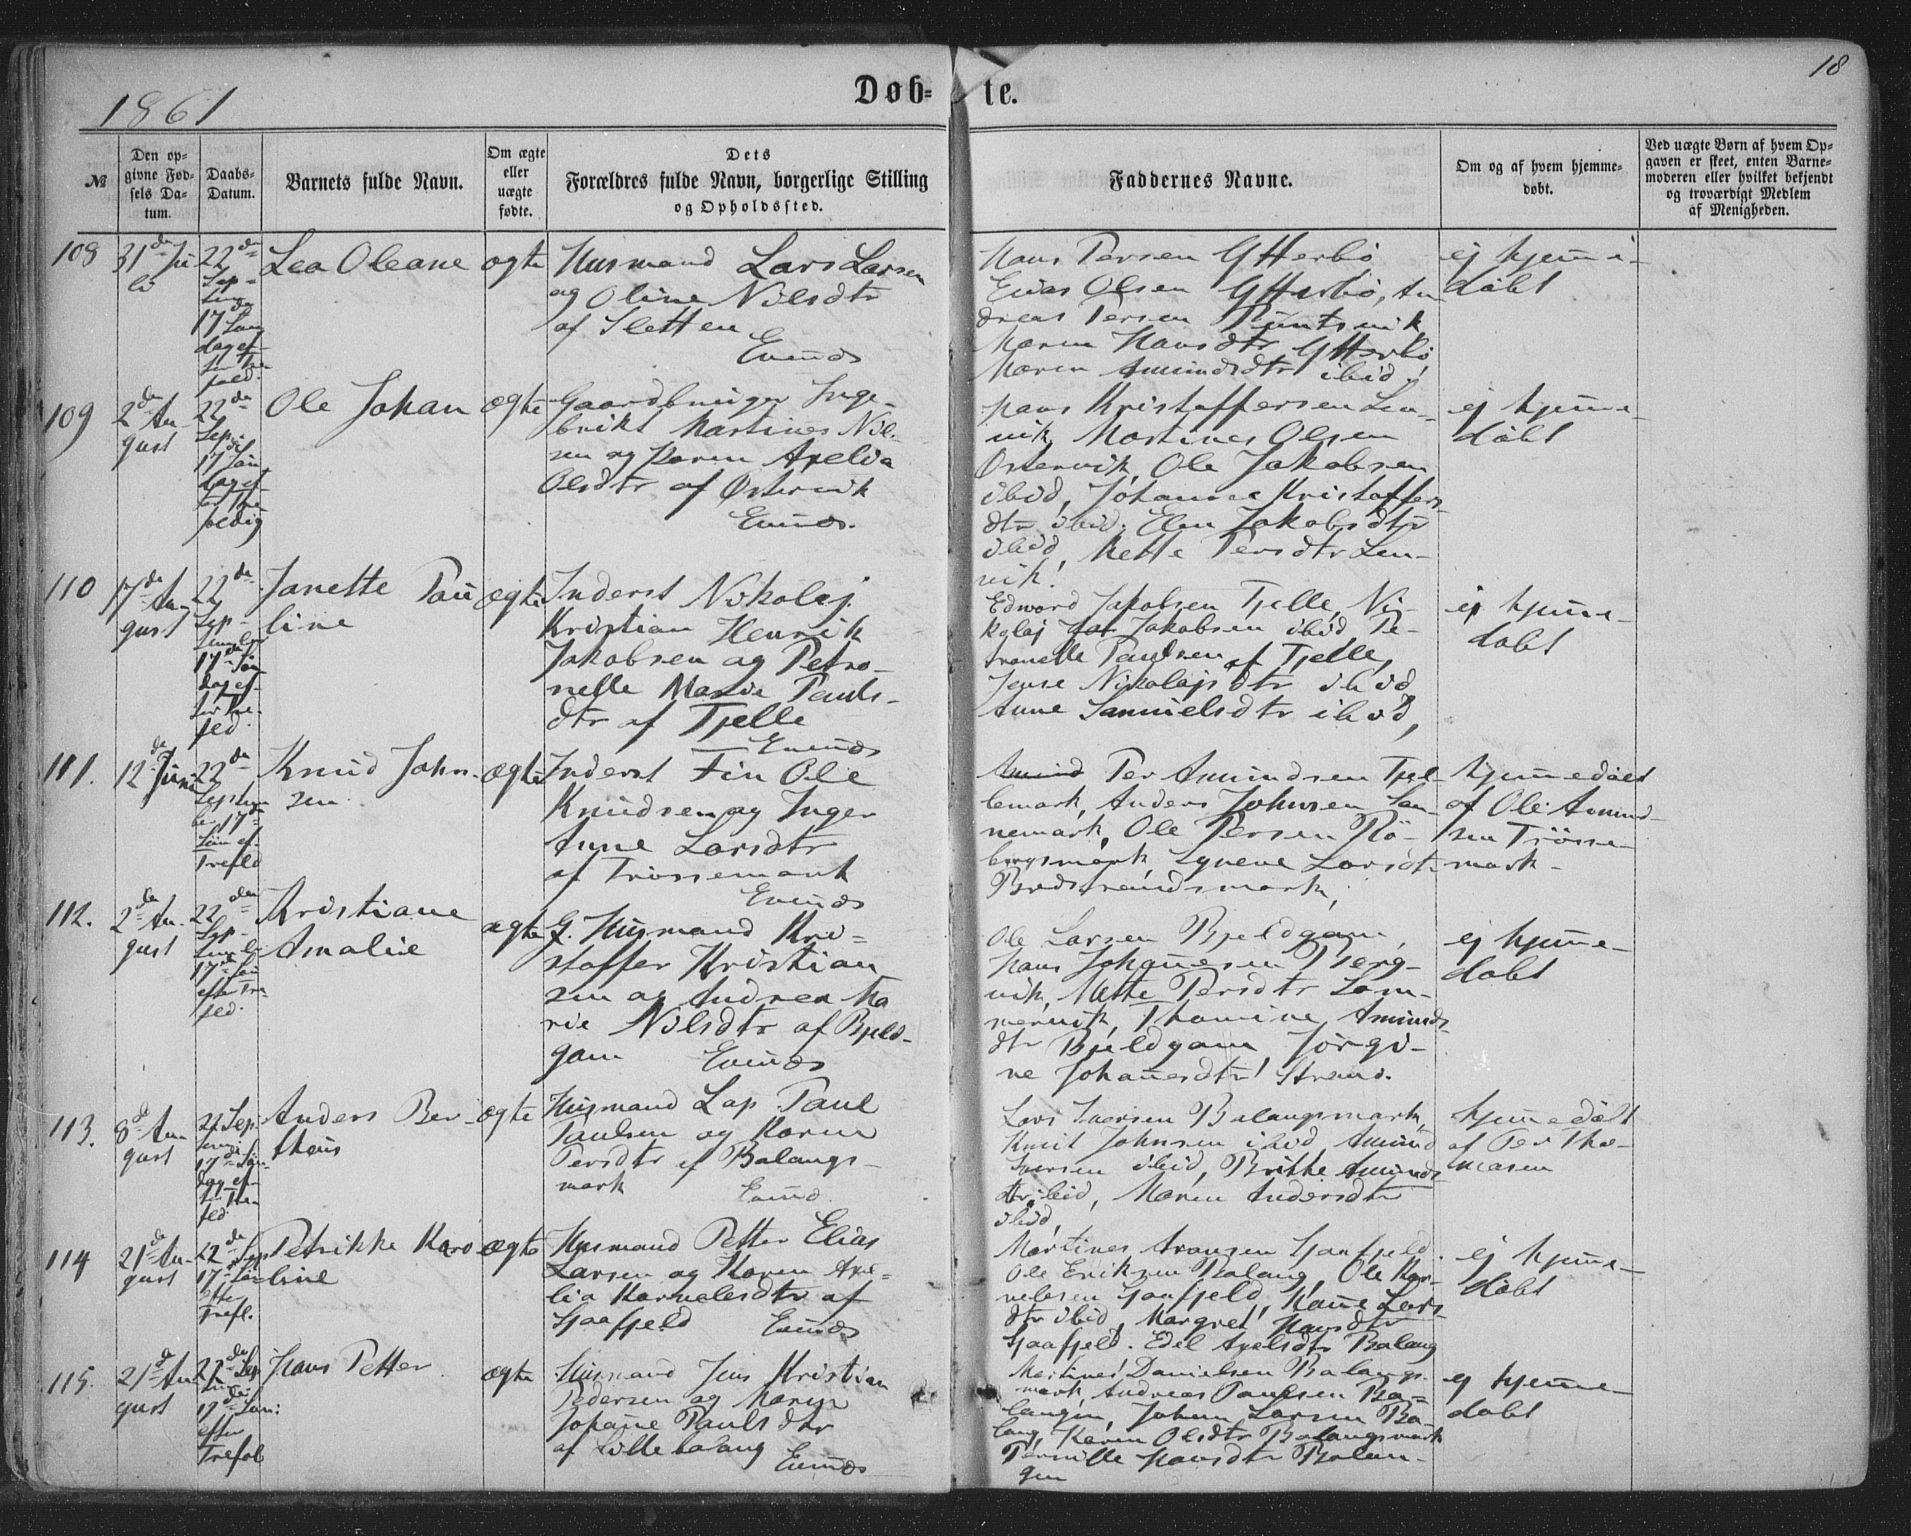 18
1861
Døb- te.
№
Den op-
givne Fød-
sels Da-
tum.
Daabs-
Datum.
Barnets fulde Navn.
Om ægte
eller
uægte
fødte.
Dets
Forældres fulde Navn, borgerlige Stilling
og Opholdssted.
Faddernes Navne.
Om og af hvem hjemme-
døbt.
Ved uægte Børn af hvem Op-
gaven er skeet, enten Barne-
moderen eller hvilket bekjendt
og troværdigt Medlem
af Menigheden.
108
31 de Ju
li
22 de
Sep-
17 Søn
dag ef-
Lea Oleane
ægte
Husmand Lars Larsen
og Oline Nilsdtr
af Sletten
Evenæs
Hans Persen
Elias Olsen An
dreas Persen
Maren Hansdtr
Maren Amundsdtr ibid
ej hjemme-
døbt
109
2 de Au-
gust
22 de
Sep
17 Søn
dag ef
Ole Johan
ægte
Gaardbruger Inge-
brikt Martines Nil-
sen og Karen Axelia
Olsdtr af Østervik
Evenæs.
Hans Kristoffersen Len-
vik, Martines Olsen
Østervik, Ole Jakobsen
ibid, Johanna Kristoffers
dtr ibid. Elen Jakobsdtr
ibid, Mette Persdtr Len-
vik!
ej hjemme-
døbt
110
17 de Au-
gust
22 de
Sep-
17 de Søn
dag ef-
Janette Pau
line
ægte
Inderst Nikolaj
Kristian Henrik
Jakobsen og Petro-
nelle Marie Pauls-
dtr af Tjelle
Evenæs
Edward Jakobsen Tjelle, Ni-
kolaj Jakobsen ibid Pe-
tronelle Paulsen af Tjelle,
Nikolajsdtr ibid
Anne Samuelsdtr ibid,
ej hjemme-
døbt
111.
12 de Juni
22 de
Septem
ber 17 de
Søn ef-
Trefld
Knud John-
sen
ægte
Inderst Fin Ole
Knudsen og Inger
Anne Larsdtr
af Trøssemark
Evenæs
Amund Per Amundsen Tjel-
lemark, Anders Johnsen San-
nemark, Ole Persen Rö-
bergsmark, Larsdtr
hjemmedøbt
af Ole Amund-
sen Trösse-
mark-
112.
2 de Au-
gust
22 den
Sep-
17 de Søn
efter Tre-
fld.
Kristiane
Amalie
ægte
G. Husmand Kri-
stoffer Kristian
sen og Andrea Ma
rie Nilsdtr af Bjeld-
gam Evenæs
Ole Larsen Bjeldgam,
Hans Johannesen Berg-
vik, Mette Persdtr Lom-
mervik, Thomine Amunds-
dtr Bjeldgam, Jörgi-
ne Johannesdtr Strand.
ej hjemme-
døbt
113.
8 de Au-
gust
22 Sep
17 de Søn-
dag ef-
Anders Ber
theus
ægte
Husmand Lap Paul
Paulsen og Karen
Persdtr af Balangs-
mark Evenæs
Lars Iversen Balangsmark,
Knut Johnsen ibid Amund
Iversen ibid, Britte Amunds
dtr ibid, Maren Andersdtr
ibid,
hjemmedøbt
af Per Tho-
masen
114
21 de Au-
gust
22 de Sep
17 Søn
efter
Trefl.
Petrikke Karo-
line
ægte
Husmand Petter Elias
Larsen og Karen Axe-
lia Kornelesdtr af
Sjaafjeld Evenæs
Martines Aronsen Sjaafjeld.
Ole Eriksen Balang, Ole Kor-
nelesen Sjaafjeld, Hanne Lars
dtr ibid, Margret Hansdtr
Sjaafjeld. Edel Axelsdtr Balang
ej hjemme-
døbt
115.
21 de Au-
gust
22 de Sep
17 de Søn:
efter
Trefol
Hans Petter
ægte
Husmand Jens Kristian
Pedersen og Maren
Johanne Paulsdtr
af Lillebalang Evenæs
Martines Danielsen Balangs-
mark, Andreas Paulsen Ba-
langen, Johan Larsen Ba-
lang, Karen Olsdtr Balangsmark
Pernille Hansdtr Balan-
gen
ej hjemme-
døbt